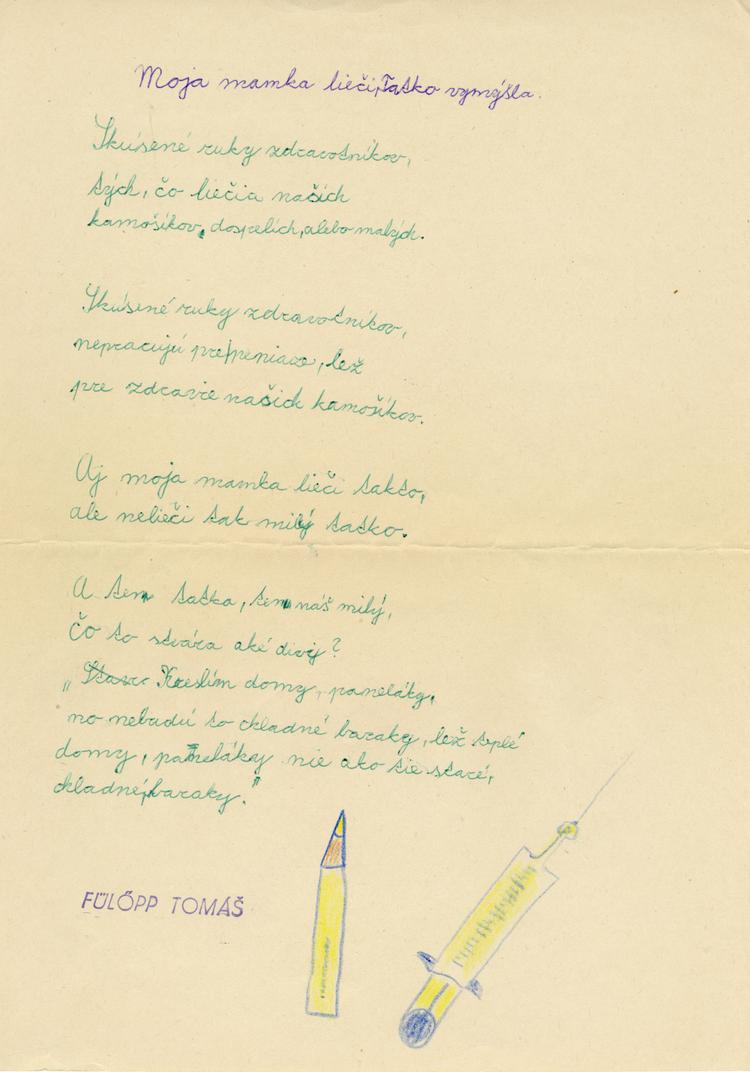 Moja mamka lieči, Taťko vymýšla.
Skúsené ruky zdravotníkov,
tých, čo liečia našich
kamošíkov, dospelích, alebo malých.
Skúsené ruky zdravotníkov,
nepracujú pre peniaze, lež
pre zdravie našich kamošíkov.
Aj moja mamka lieči takto,
ale nelieči tak milý taťko.
A ten taťka, ten náš milý,
čo to stvára aké divy?
„Stav Kreslím domy, paneláky,
no nebudú to chladné baraky, lež teplé
domy, paneláky nie ako tie staré,
chladné, baraky."
FÜLÖPP TOMÁŠ